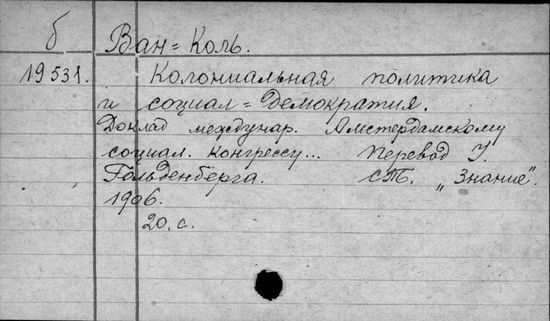 б Ван=Коль.
19531. Колониальная политика
и социал=демократия.
Доклад междунар. Амстердамскому
социал. конгрессу... Перевод И.
Гольденберга. СПб. „Знание".
1906.
20. с.